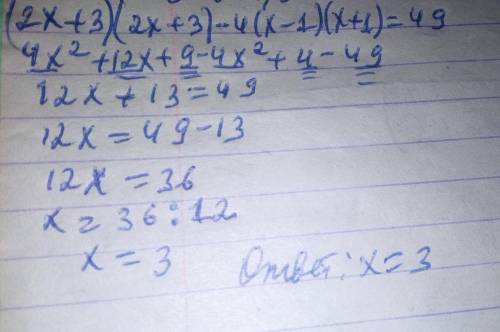 (2x+3)(2x+3)-4(x-1)(x+1)=49
4x²+12x+9-4x²+4-49
12x+13=49
12x=49-13
12x=36
x=36:12
x=3
Ответ: x=3